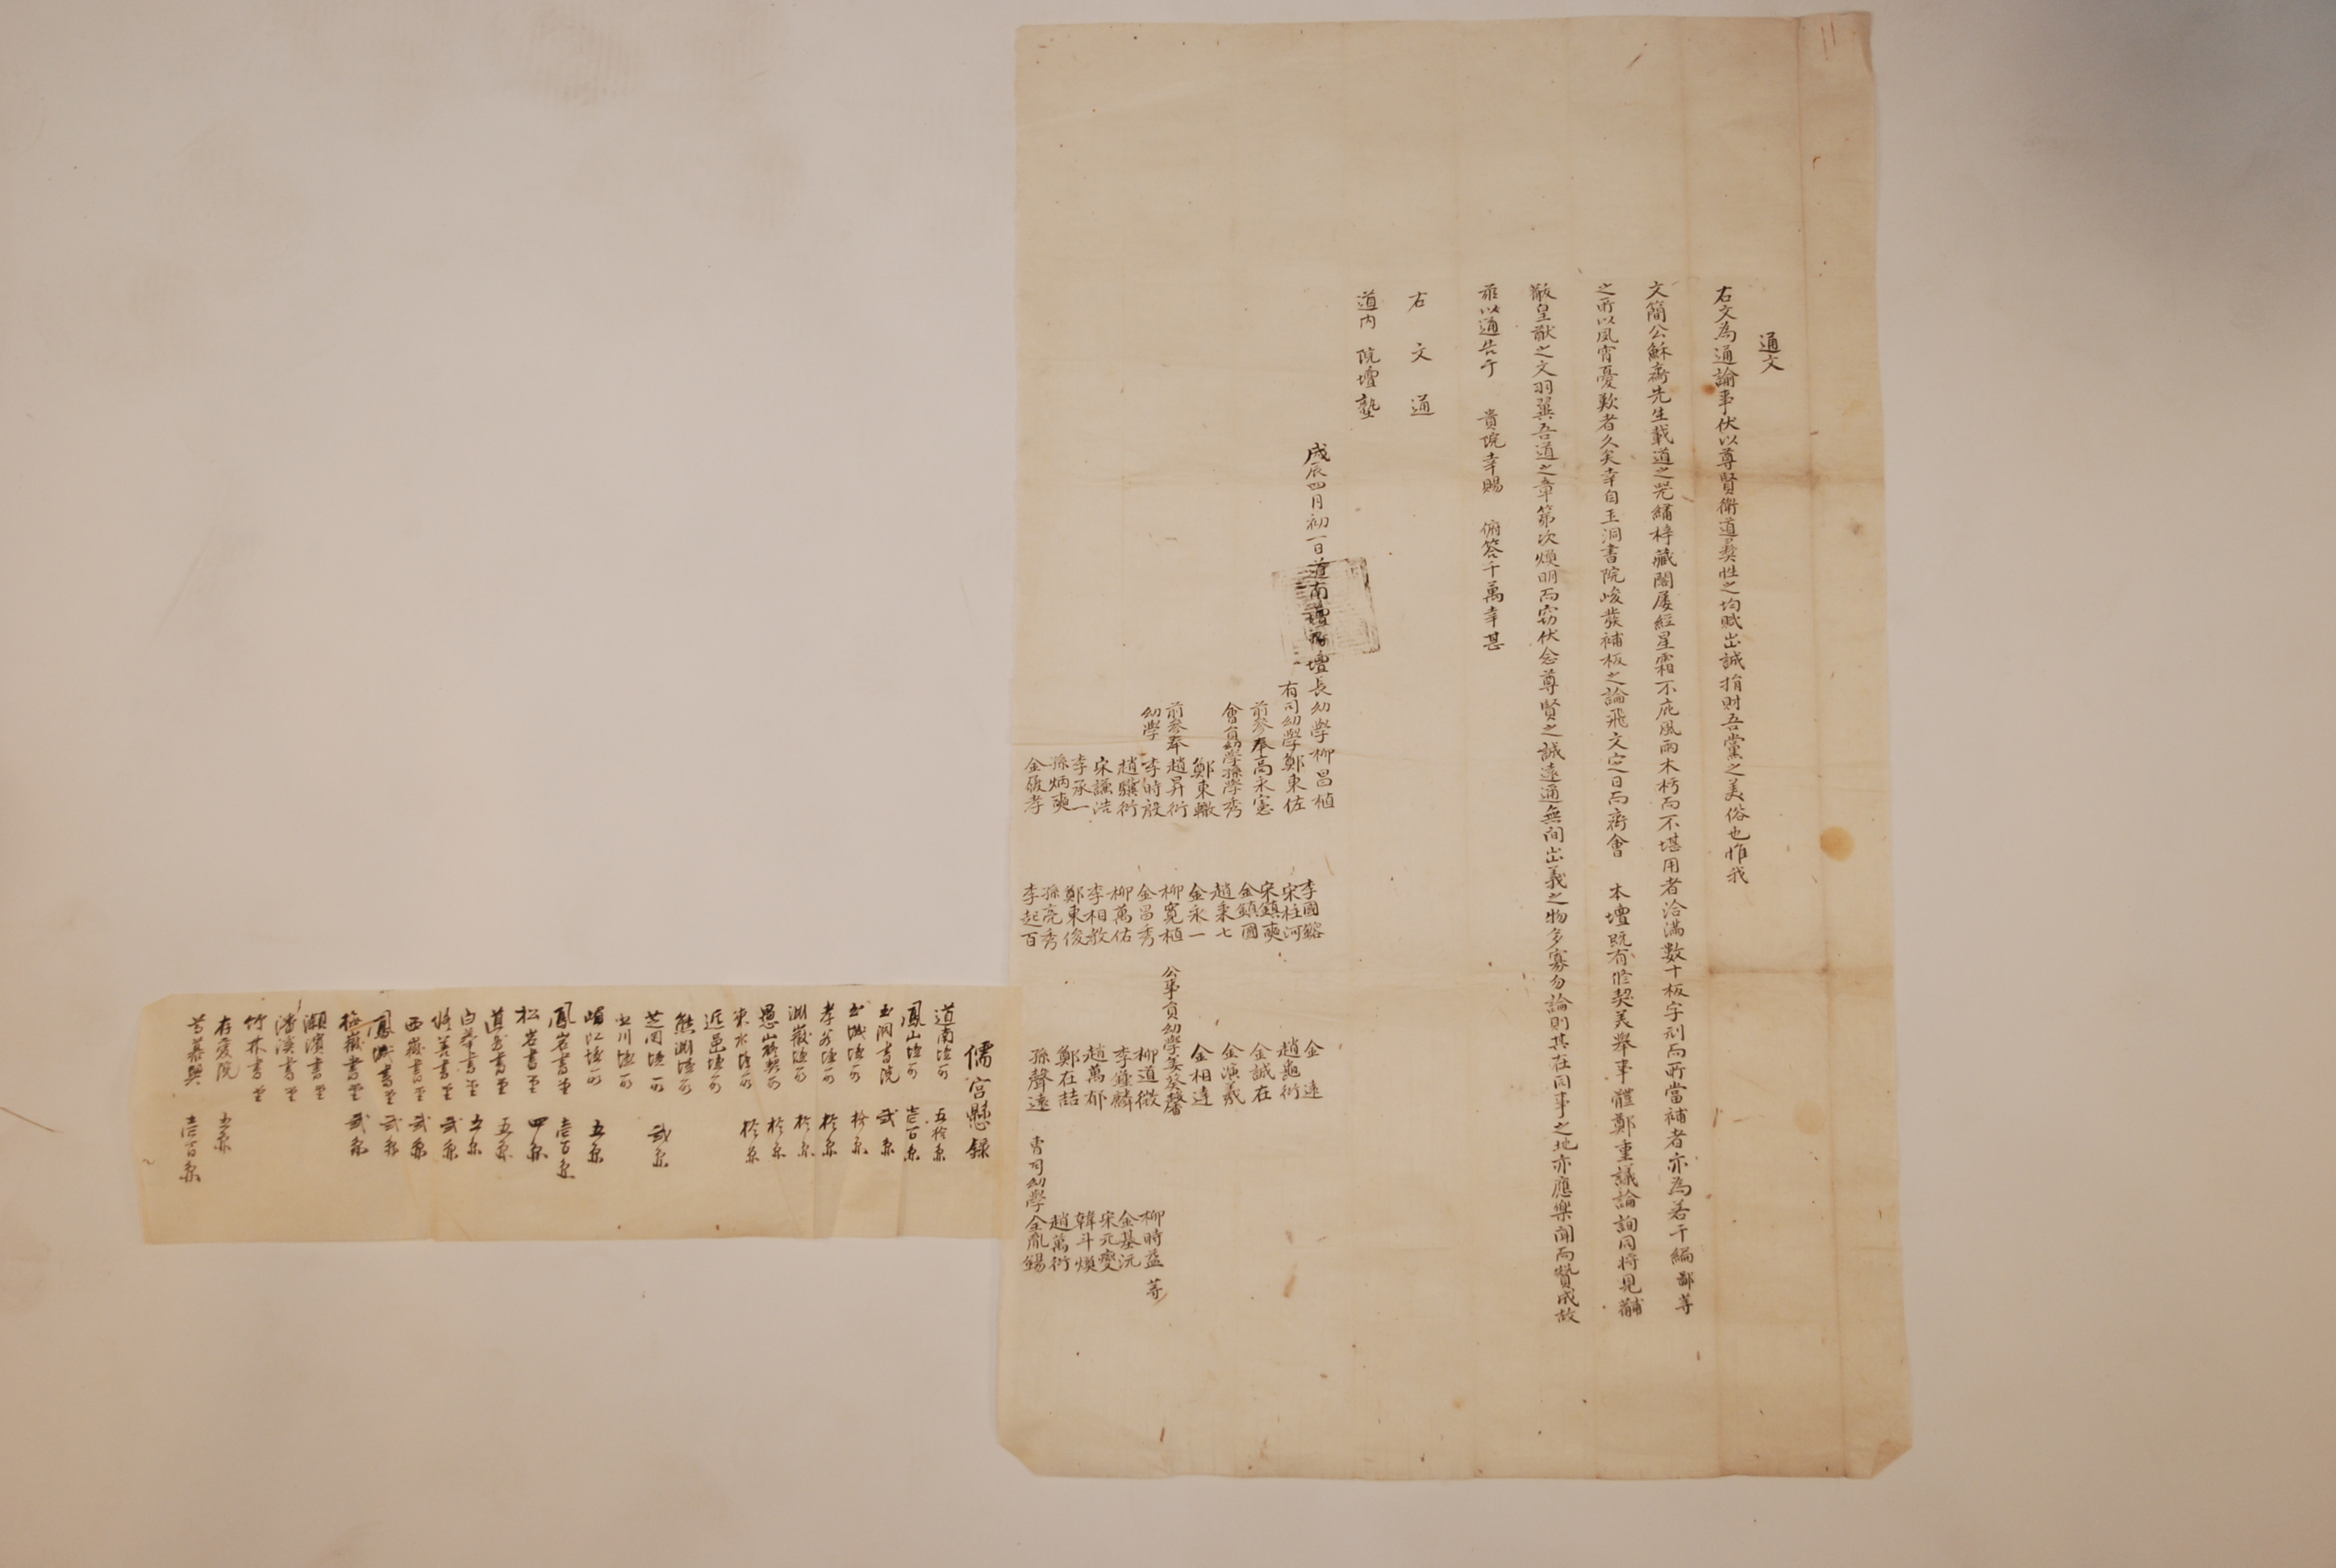 通文
右文為通諭事伏以尊賢衛道彛性之均賦出誠捐財吾黨之美俗也惟我
文簡公穌齋先生載道之咒繡梓藏閣屡經星霜不庇風雨木朽而不堪用者洽滿數十板字刓而所當補者亦為若干編鄙等
之所以夙宵憂歎者久矣幸自玉洞書院峻發補板之論飛文定日而齊會 本壇既有修契美舉事軆鄭重議論詢同將見黼
黻皇猷之文羽翼吾道之章第次煥明而窃伏念尊賢之誠遠通無間出義之物多寡勿論則其在同事之地亦應樂聞而贊成故
玆以通告于 貴院幸賜 俯答千萬幸甚
右文通
道内 院壇塾
戊辰四月初一日道南壇會壇長幼學柳昌植
有司幼學鄭東佐
前參奉高永憲
會員幼學孫學秀
鄭東轍
前參奉趙昇衍
幼學 李時殷
趙驥衍
宋謙浩
李承一
孫炳奭
金履孝
李國鎔
宋柱河
宋鎮奭
金鎮國
趙秉七
金永一
柳寛植
金昌秀
柳萬佑
李相敎
鄭東俊
孫亮秀
李起百
金 遠
趙龜衍
金誠在
金演羲
金相逵
公事員幼學姜葵馨
柳道徵
李鍾麟
趙萬郁
鄭在喆
孫聲遠
柳時益 等
金基沅
宋元燮
韓斗煥
趙萬衍
曺司幼學金胤錫
儒宮懸録
道南壇所 五拾兩
鳳山壇所 壱百兩
玉洞書院 弐兩
玉城壇所 拾兩
孝谷壇所 拾兩
渊嶽壇所 拾兩
愚山稧契所 拾兩
東水壇所 拾兩
近嵒壇所
熊渊壇所
芝岡壇所 弐兩
玉川壇所
嵋江壇所 五兩
鳳岩書堂 壱百兩
松岩書堂 四兩
道谷書堂 五兩
白華書堂 五兩
修善書堂 弐兩
西嶽書堂 弐兩
鳳城書堂 弐兩
梅嶽書堂 弐兩
瀬濱書堂
潘溪書堂
竹林書堂
存愛院 五兩
慕契 壱百兩